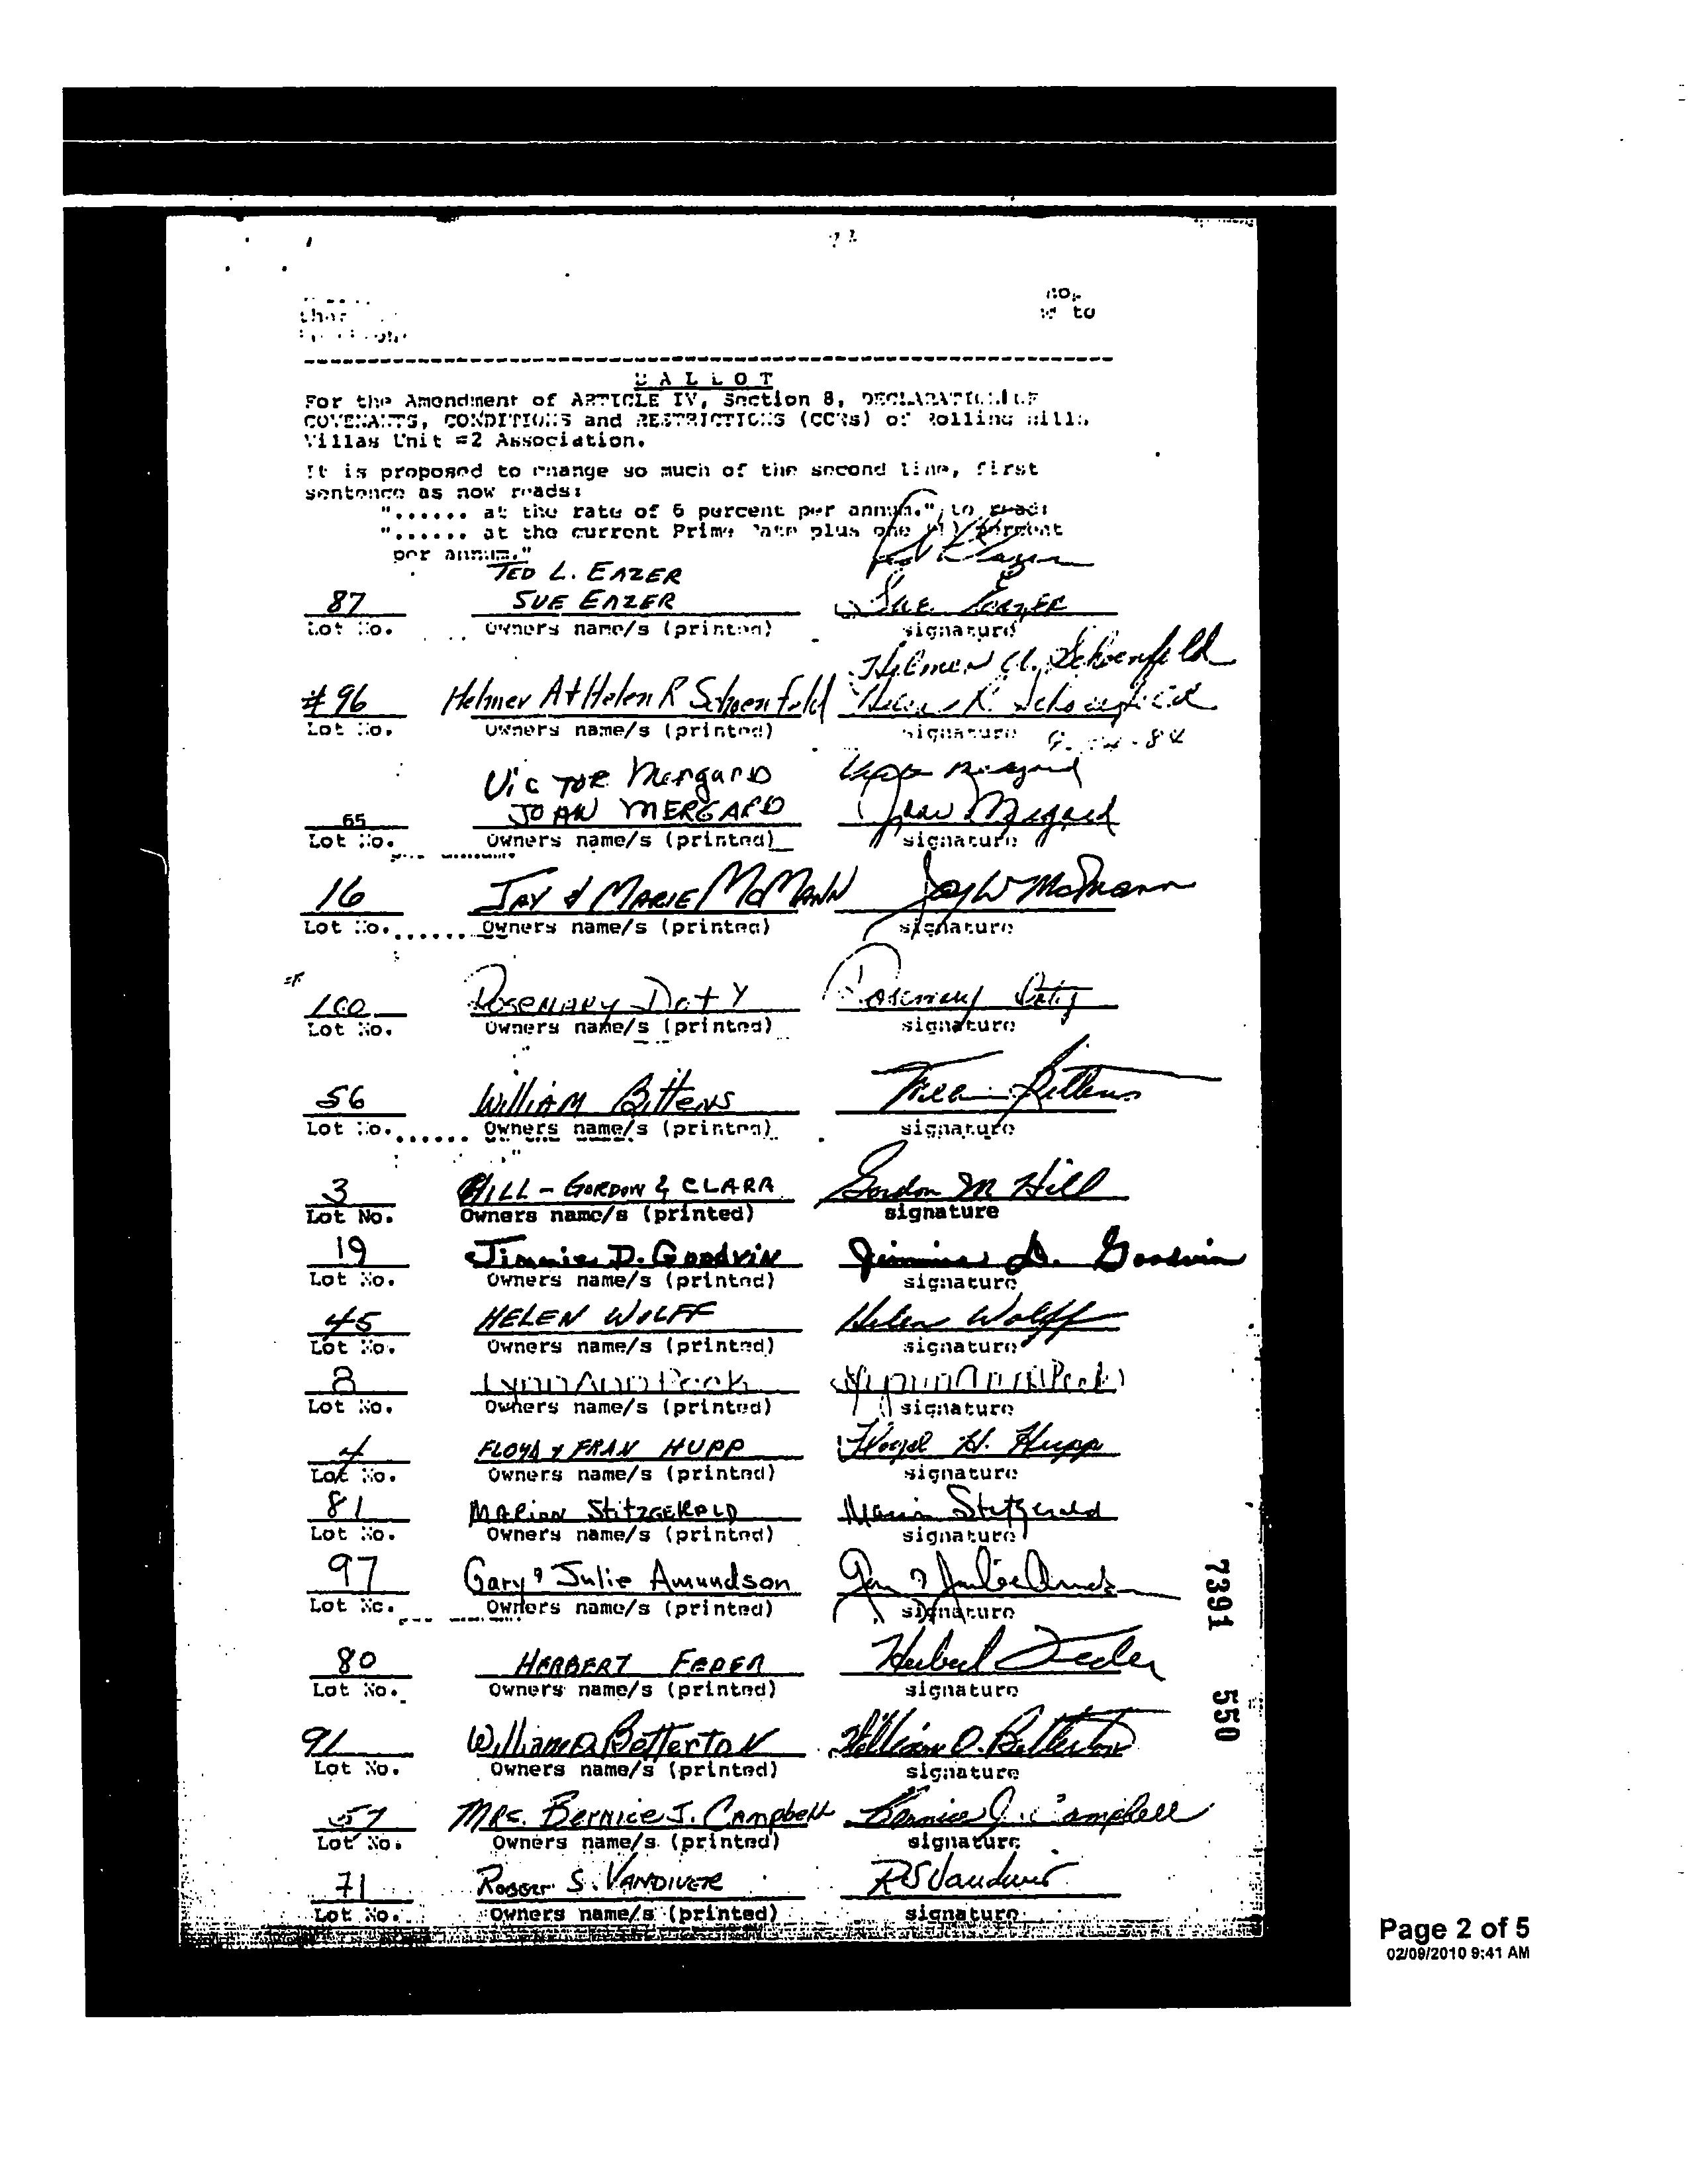 no.
to
BALLOT
For the Amendment of ARTICLE IV, Section 8, DECLARATION OF
COVENANTS, CONDITIONS and RESTRICTIONS (CCRs) of Rolling Hills
Villas Unit #2 Association.
It is proposed to change so much of the second line, first
sentence as now reads:
"...... at the rate of 6 percent per annum.", to read:
"...... at the current Prime Rate plus one (1) percent
per annum."
TED L. EAZER
87 SUE EAZER Sue Eazer
Lot No. Owners name/s (printed) signature
Helmer A. Schoenfeld
#96 Helmer A + Helen R Schoenfeld Helen R. Schoenfeld
Lot No. Owners name/s (printed) signature
Victor Mergard
65 JOAN MERGARD Joan Mergard
Lot No. Owners name/s (printed) signature
16 JAY & MARIE McMANN Jay W McMann
Lot No. Owners name/s (printed) signature
100 Rosemary Doty Rosemary Doty
Lot No. Owners name/s (printed) signature
56 William Bittens Bittens
Lot No. Owners name/s (printed) signature
3 HILL - GORDON & CLARA Gordon M Hill
Lot No. Owners name/s (printed) signature
19 Jimmie D. Goodwin Jimmie D. Goodwin
Lot No. Owners name/s (printed) signature
45 HELEN WOLFF Helen Wolff
Lot No. Owners name/s (printed) signature
8 Lynn Ann Peck Lynn Ann Peck
Lot No. Owners name/s (printed) signature
4 FLOYD & FRAN HUPP Floyd H. Hupp
Lot No. Owners name/s (printed) signature
81 MARION STITZGERALD Marion Stitzgerald
Lot No. Owners name/s (printed) signature
97 Gary & Julie Amundson Gary & Julie Amundson
Lot No. Owners name/s (printed) signature
80 HERBERT FEDER Herbert Feder
Lot No. Owners name/s (printed) signature
91 William O. Betterton William O. Betterton
Lot No. Owners name/s (printed) signature
57 Mrs. Bernice J. Campbell Bernice J. Campbell
Lot No. Owners name/s (printed) signature
71 Roger S. Vandiver R S Vandiver
Lot No. Owners name/s (printed) signature
7391 550
Page 2 of 5
02/09/2010 9:41 AM